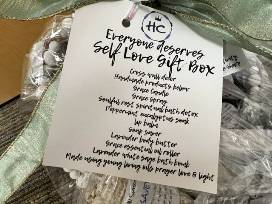 HC
Everyone deserves
Self Love Gift Box
Cross wall decor
Handmade products below
Grace candle
Grace spray
Soulful root spiritual bath detox
Peppermint eucalyptus soak
Lip balm
Soap saver
Lavender body butter
Grace essential oil roller
Lavender white sage bath bomb
Made using young living oils prayer love & light